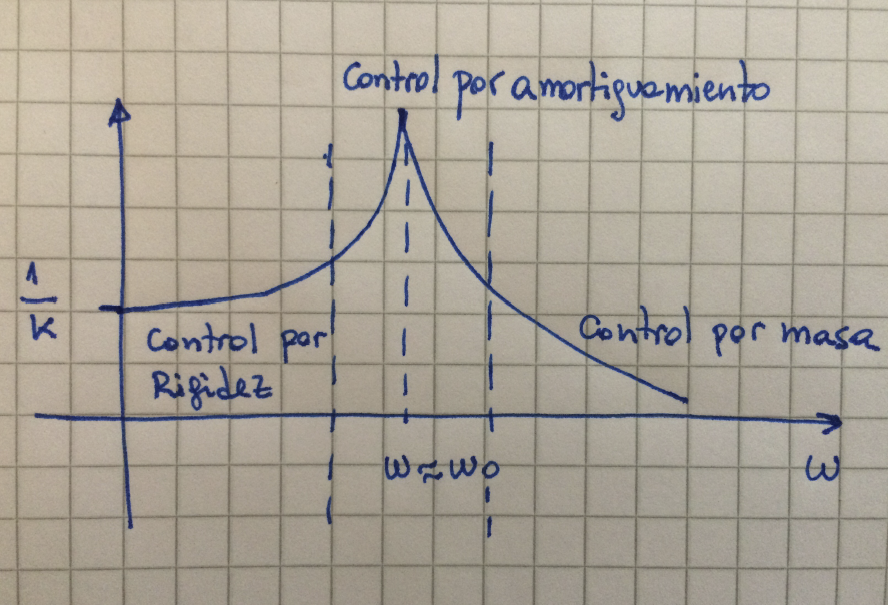 Control por amortiguamiento
1
K
Control por
Rigidez
Control por masa
ω ≈ ω0
ω